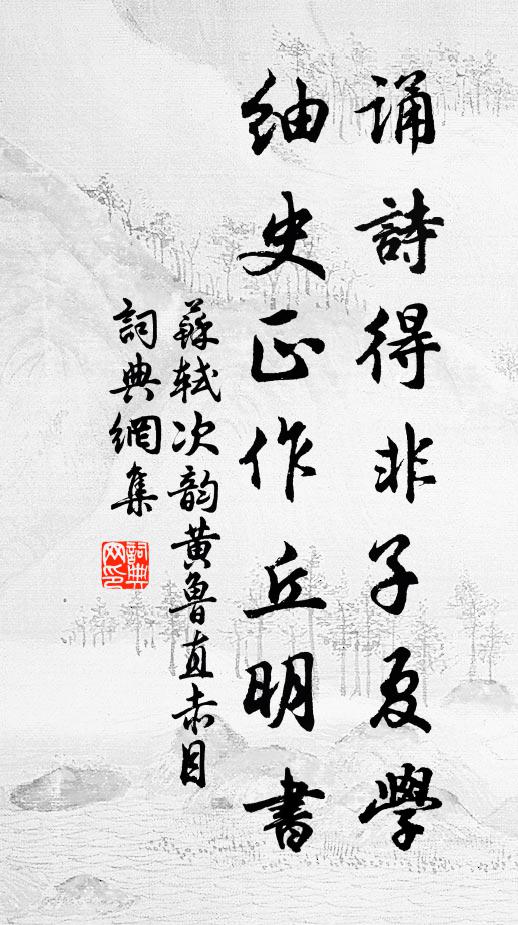 诵詩得非子夏學
紬史正作丘明書
蘇軾次韵黄魯直赤目
詞典網集
詞典网印